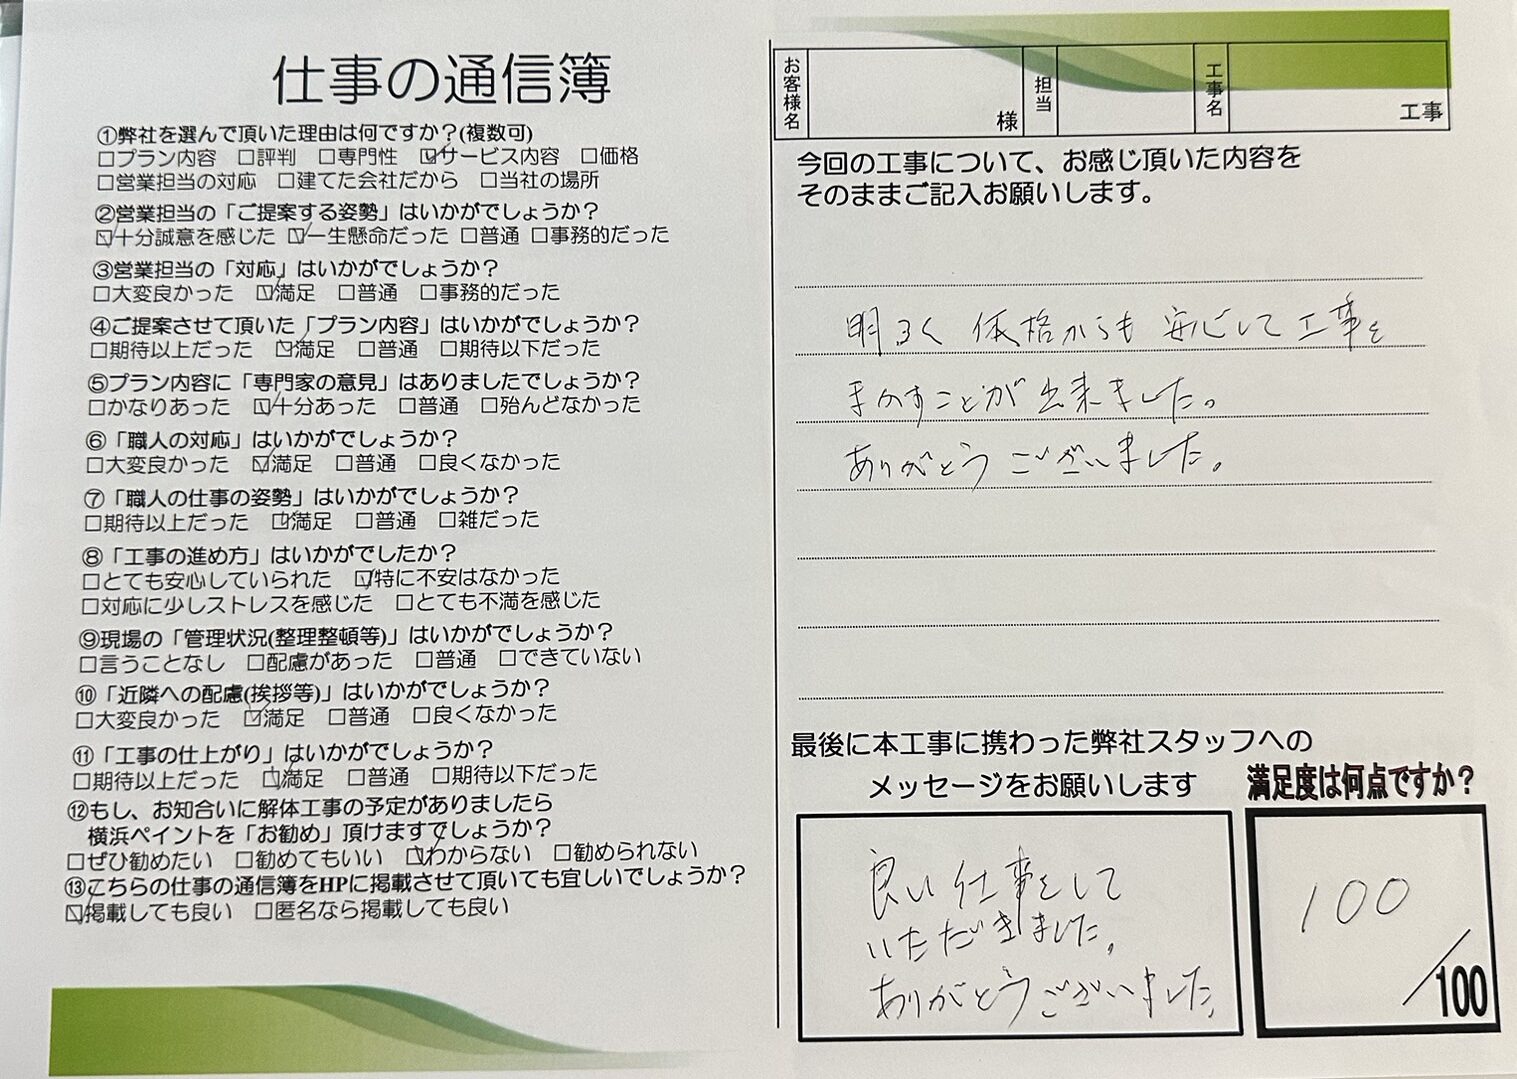 仕事の通信簿
①弊社を選んで頂いた理由は何ですか？(複数可)
□プラン内容 □評判 □専門性 ☑サービス内容 □価格
□営業担当の対応 □建てた会社だから □当社の場所
②営業担当の「ご提案する姿勢」はいかがでしょうか？
☑十分誠意を感じた ☑一生懸命だった □普通 □事務的だった
③営業担当の「対応」はいかがでしょうか？
□大変良かった ☑満足 □普通 □事務的だった
④ご提案させて頂いた「プラン内容」はいかがでしょうか？
□期待以上だった ☑満足 □普通 □期待以下だった
⑤プラン内容に「専門家の意見」はありましたでしょうか？
□かなりあった ☑十分あった □普通 □殆んどなかった
⑥「職人の対応」はいかがでしょうか？
□大変良かった ☑満足 □普通 □良くなかった
⑦「職人の仕事の姿勢」はいかがでしょうか？
□期待以上だった ☑満足 □普通 □雑だった
⑧「工事の進め方」はいかがでしたか？
□とても安心していられた ☑特に不安はなかった
□対応に少しストレスを感じた □とても不満を感じた
⑨現場の「管理状況(整理整頓等)」はいかがでしょうか？
□言うことなし □配慮があった □普通 □できていない
⑩「近隣への配慮(挨拶等)」はいかがでしょうか？
□大変良かった ☑満足 □普通 □良くなかった
⑪「工事の仕上がり」はいかがでしょうか？
□期待以上だった ☑満足 □普通 □期待以下だった
⑫もし、お知合いに解体工事の予定がありましたら
横浜ペイントを「お勧め」頂けますでしょうか？
□ぜひ勧めたい □勧めてもいい ☑わからない □勧められない
⑬こちらの仕事の通信簿をHPに掲載させて頂いても宜しいでしょうか？
☑掲載しても良い □匿名なら掲載しても良い
お客様名 様 担当 工事名 工事
今回の工事について、お感じ頂いた内容を
そのままご記入お願いします。
明るく 価格からも 安心して工事を
まかすことが出来ました。
ありがとうございました。
最後に本工事に携わった弊社スタッフへの
メッセージをお願いします
良い仕事をして
いただきました。
ありがとうございました。
満足度は何点ですか？
100
/100